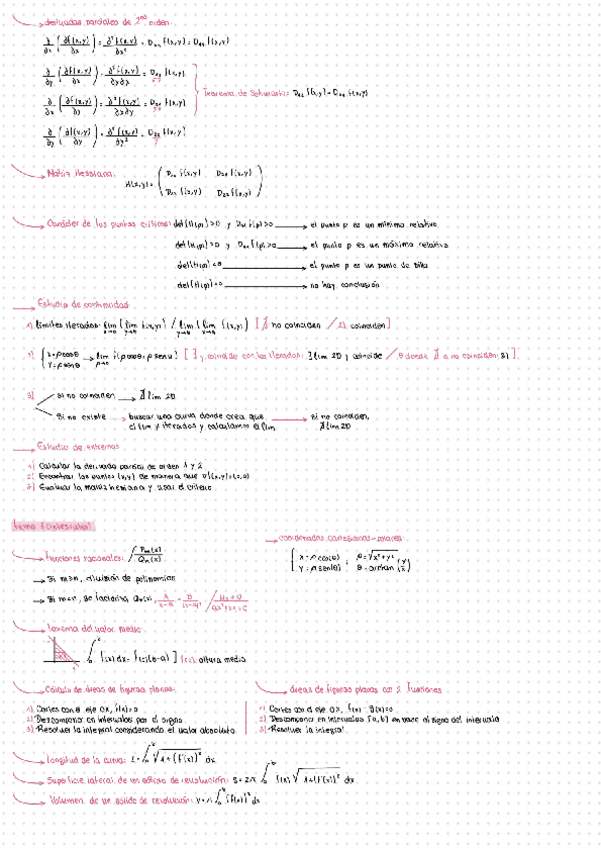 derivadas parciales de 2º orden:
∂/∂x (∂f(x,y)/∂x) = ∂²f(x,y)/∂x² = D₁₁ f(x,y)
∂/∂y (∂f(x,y)/∂x) = ∂²f(x,y)/∂y∂x = f(x,y)
Teorema de Schwartz: D₁₂ f(x,y) = D₂₁ f(x,y)
∂/∂x (∂f(x,y)/∂y) = ∂²f(x,y)/∂x∂y = f(x,y)
∂/∂y (∂f(x,y)/∂y) = ∂²f(x,y)/∂y² = D₂₂ f(x,y)
Matriz Hessiana:
H(x,y) =
Carácter de los puntos críticos: det(H(p))>0 y → el punto p es un mínimo relativo
det(H(p))>0 y → el punto p es un máximo relativo
det(H(p))<0 → el punto p es un punto de silla
det(H(p))=0 → no hay conclusión
Estudio de continuidad:
1) límites iterados: lim (lim f(x,y)) / lim (lim f(x,y)) [∄ no coinciden / 2) coinciden]
x=ρcosθ
y=ρsenθ
→ lim f(ρcosθ, ρsenθ) [∃ y coincide con los iterados: ∃ lim 2D y coincide / θ donde ∄ o no coinciden: 3)]
3) si no coinciden → ∄ lim 2D
si no existe → buscar una curva donde crea que → si no coinciden,
el lim y iterados y calculamos el lim ∄ lim 2D
Estudio de extremos
1) Calcular la derivada parcial de orden 1 y 2
2) Encontrar los puntos (x,y) de manera que ∇f(x,y)=(0,0)
3) Evaluar la matriz hessiana y usar el criterio
tema 5 (integrales)
coordenadas cartesianas-polares:
x = ρcos(θ)
y = ρsen(θ)
funciones racionales: ∫ Pm(x)/Qn(x)
Si m≥n, división de polinomios
Si m<n, se factoriza Qn(x)
teorema del valor medio:
altura media
Cálculo de áreas de figuras planas:
1) Cortes con el eje OX, f(x)=0
2) Descomponer en intervalos por el signo
3) Resolver la integral considerando el valor absoluto
áreas de figuras planas con 2 funciones
1) Cortes con el eje OX, f(x) - g(x)=0
2) Descomponer en intervalos [a,b] en base al signo del intervalo
3) Resolver la integral
longitud de la curva: L=∫ √1+(f'(x))² dx
Superficie lateral de un sólido de revolución: S=2π ∫ f(x) √1+(f'(x))² dx
Volumen de un sólido de revolución: V=π ∫ (f(x))² dx